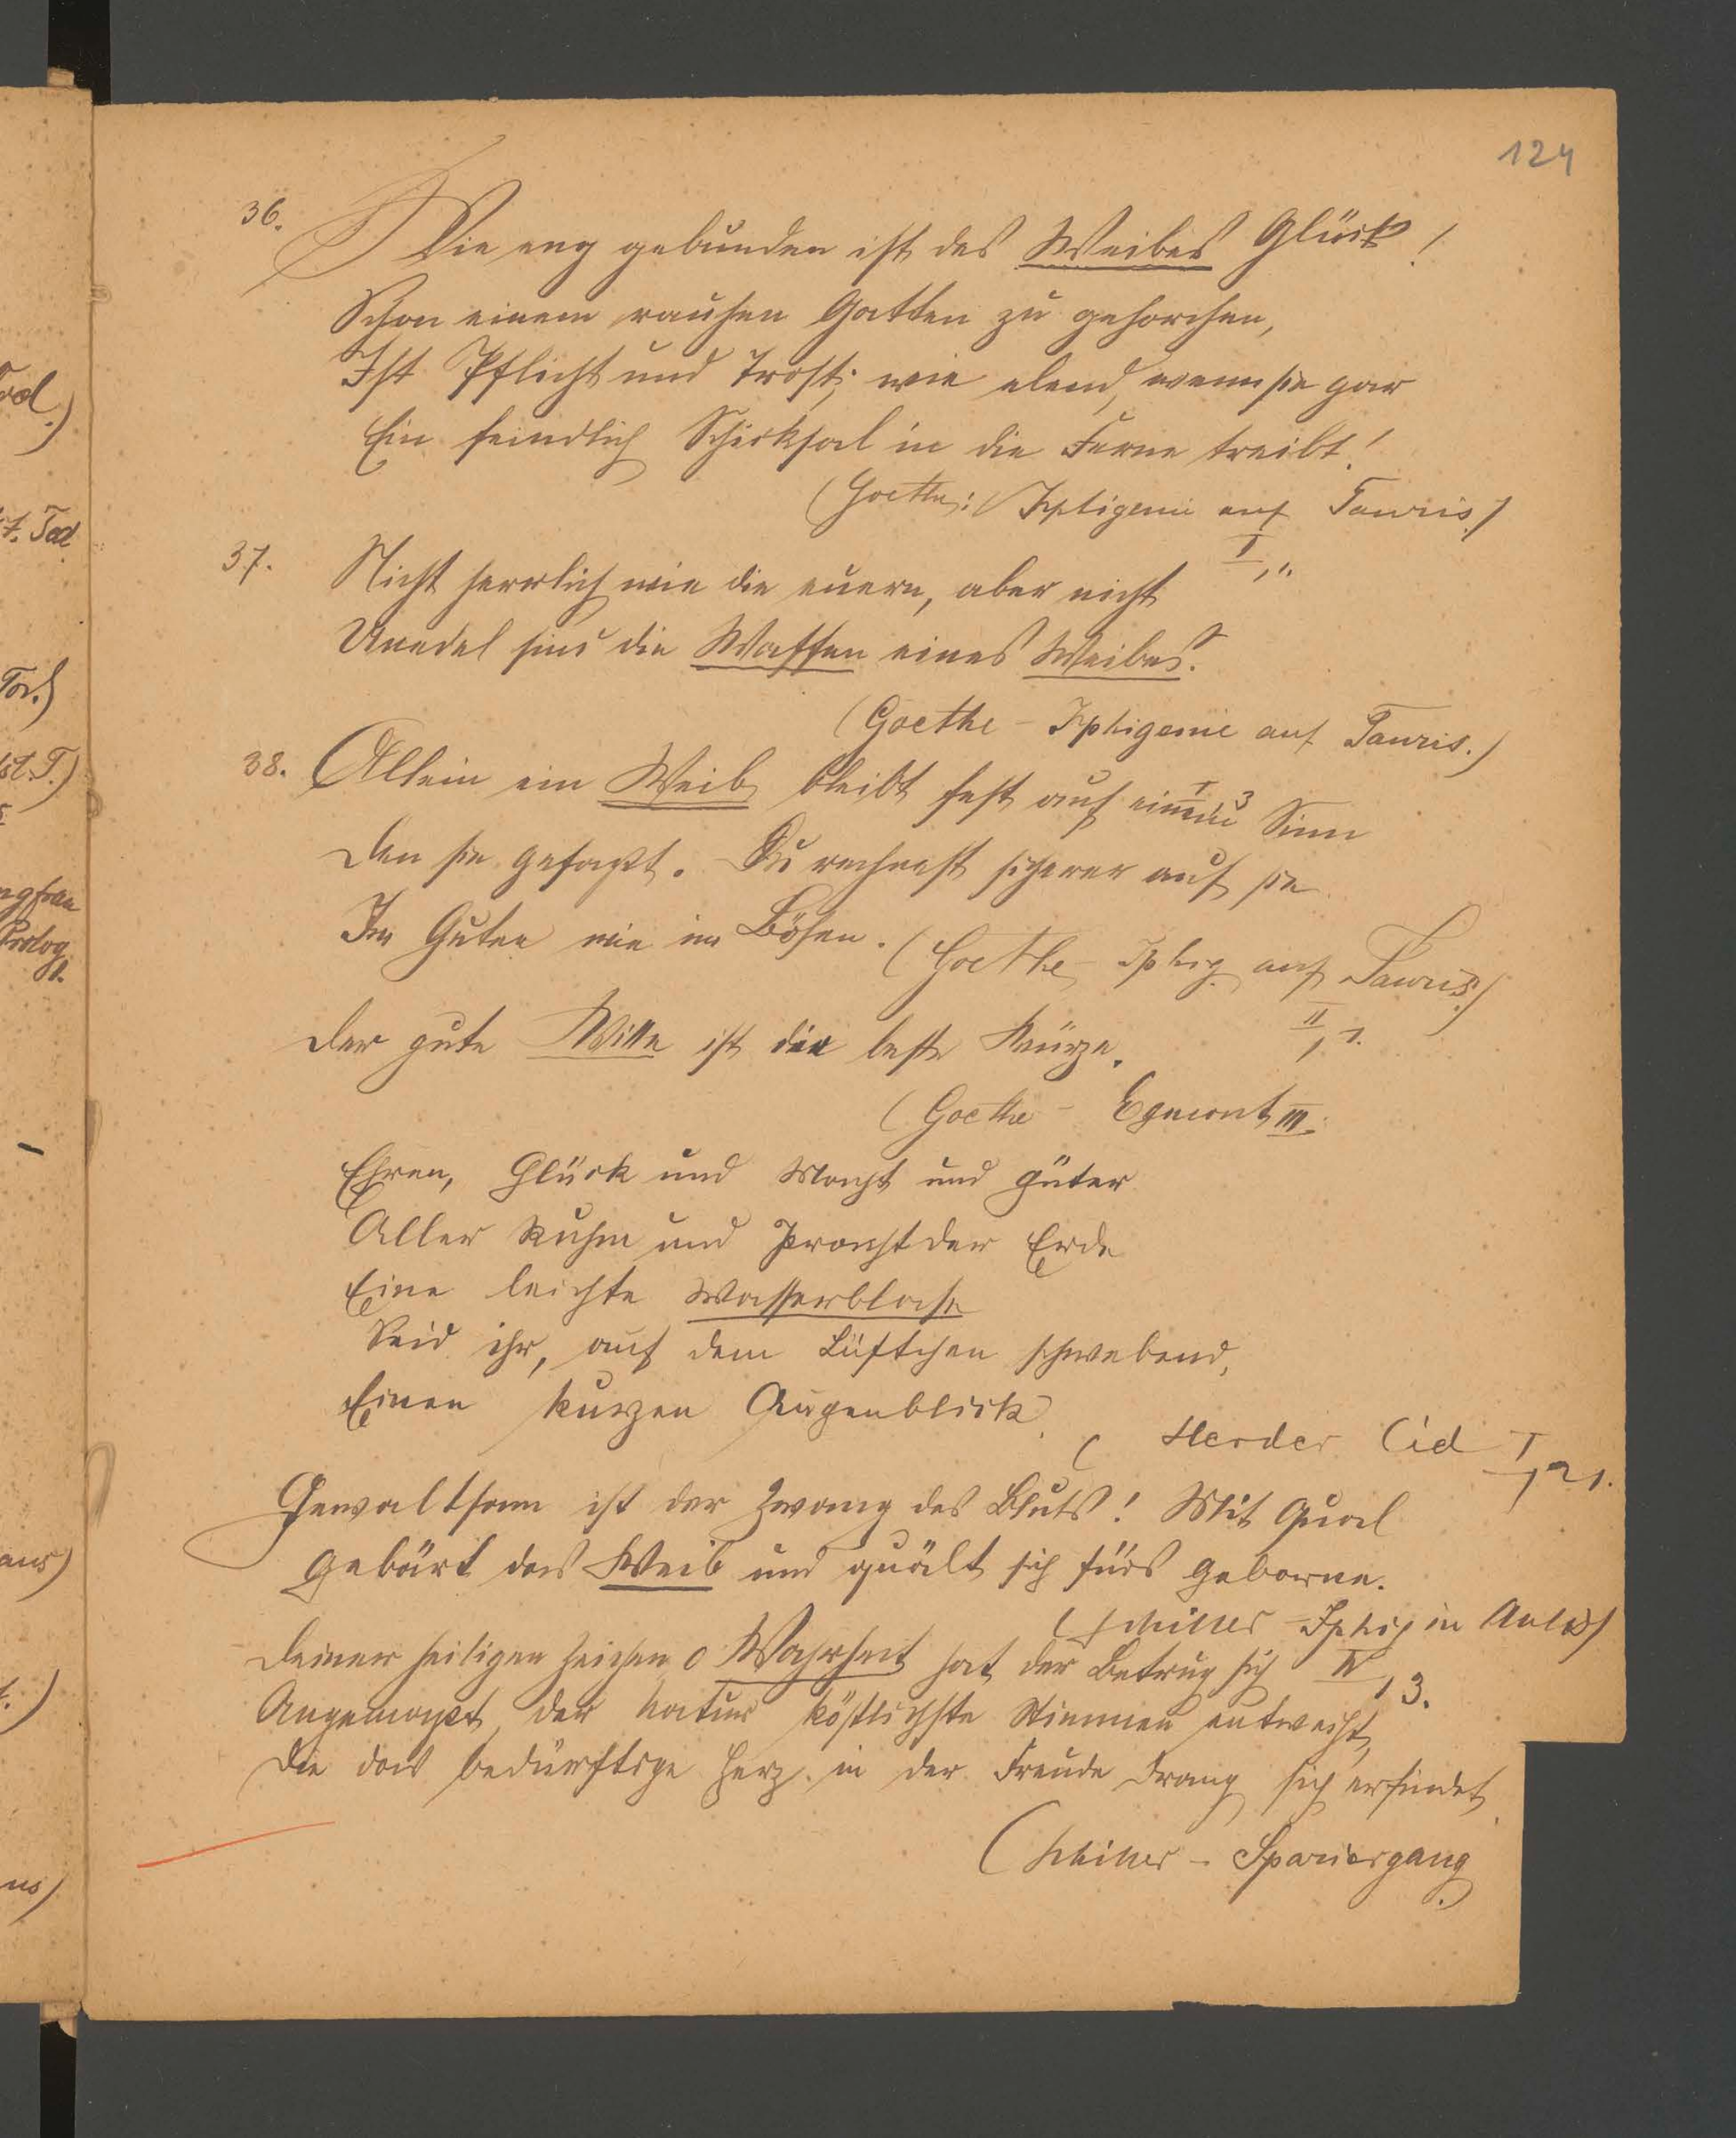 124
36. Wie eng gebunden ist des Weibes Glück!
Schon einem rauhen Gatten zu gehorchen,
Ist Pflicht und Trost; wie elend, wenn sie gar
Ein feindlich Schicksal in die Ferne treibt!
(Goethe: Iphigenie auf Tauris)
I, 1.
37. Nicht herrlich wie die euern, aber nicht
Unedel sind die Waffen eines Weibes.
(Goethe - Iphigenie auf Tauris.)
I, 3
38. Allein ein Weib bleibt fest auf einem Sinn
Den sie gefaßt. Du rechnest sicherer auf sie
Im Guten wie im Bösen. (Goethe - Iphig. auf Tauris)
II, 1.
Der gute Wille ist die beste Kürze.
(Goethe - Egmont III.
Ehren, Glück und Macht und Güter
Aller Ruhm und Pracht der Erde
Eine leichte Wasserblase
Seid ihr, auf dem Lüftchen schwebend,
Einen kurzen Augenblick.
(Herder Cid I, 21.
Gewaltsam ist der Zwang des Bluts! Mit Qual
Gebärt das Weib und quält sich fürs Geborne.
(Schiller - Iphig in Aulis)
IV, 3.
Deiner heiligen Zeichen o Wahrheit hat der Betrug sich
Angemaßt, der Natur köstlichste Stimmen entweiht,
Die das bedürftige Herz in der Freude Drang sich erfindet.
(Schiller - Spaziergang.)
Tod.)
Tod
Tor.)
ngfrau
Prolog
aus)